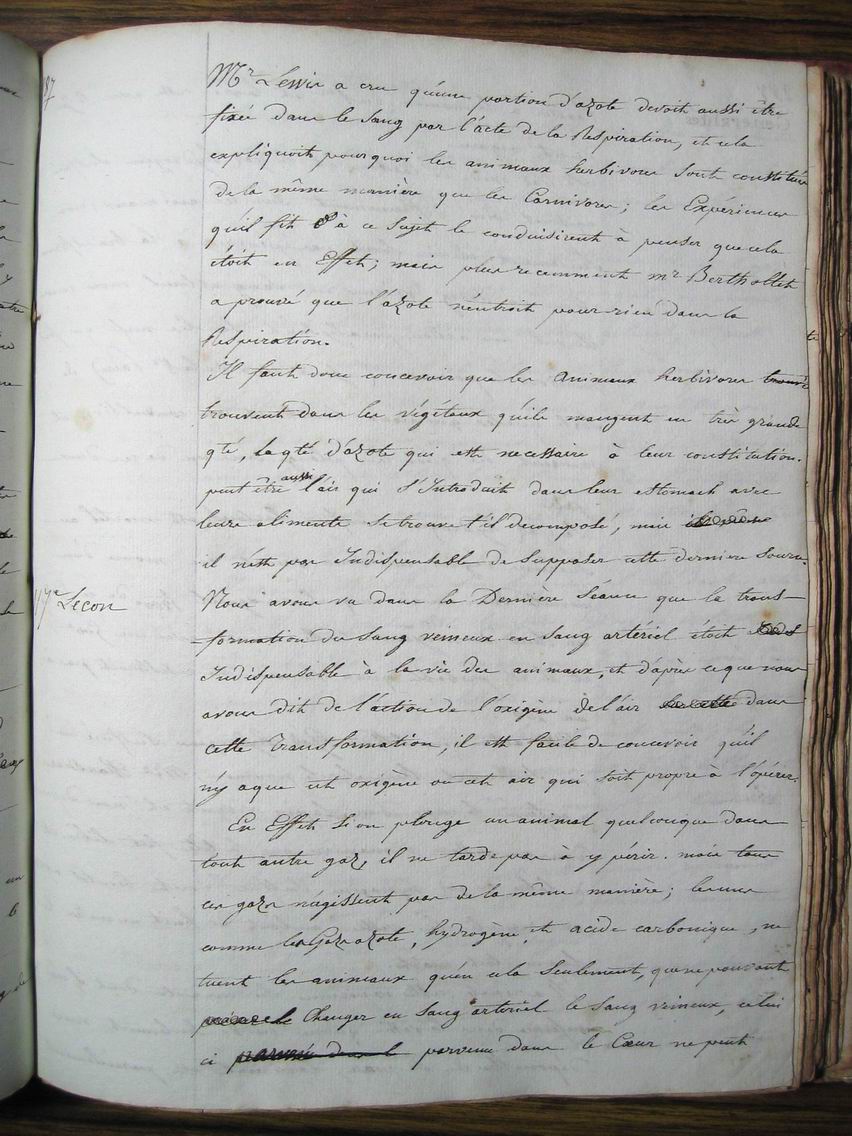 187
Mr Lewin a cru qu'une portion d'azote devoit aussi être
fixée dans le sang par l'acte de la Respiration, et cela
expliquoit pourquoi les animaux herbivores sont constitués
de la même manière que les Carnivores ; les Expériences
qu'il fit à ce sujet le conduisirent à penser que cela
étoit en Effet ; mais plus recemment mr Berthollet
a prouvé que l'azote n'entroit pour rien dans la
Respiration.
Il faut donc concevoir que les animaux herbivores
trouvent dans les végétaux qu'ils mangent en très grande
qté, la qté d'azote qui est necessaire à leur constitution.
peut être aussi l'air qui s'Introduit dans leur estomach avec
leurs aliments se trouve t'il decomposé, mais
il n'est pas Indispensable de supposer cette derniere source.
17e Lecon
Nous avons vu dans la Derniere séance que la trans-
formation du sang veineux en sang artériel étoit
Indispensable à la vie des animaux, et d'après ce que nous
avons dit de l'action de l'oxigène de l'air dans
cette transformation, il est facile de concevoir qu'il
n'y a que cet oxigène ou cet air qui soit propre à l'opérer.
En Effet si on plonge un animal quelconque dans
tout autre gaz, il ne tarde pas à y périr. mais tous
ces gazs n'agissent pas de la même manière ; les uns
comme les Gazs azote, hydrogène, et acide carbonique, ne
tuent les animaux qu'en cela seulement, que ne pouvant
Changer en sang artériel le sang veineux, celui
ci parvenu dans le Cœur ne peut